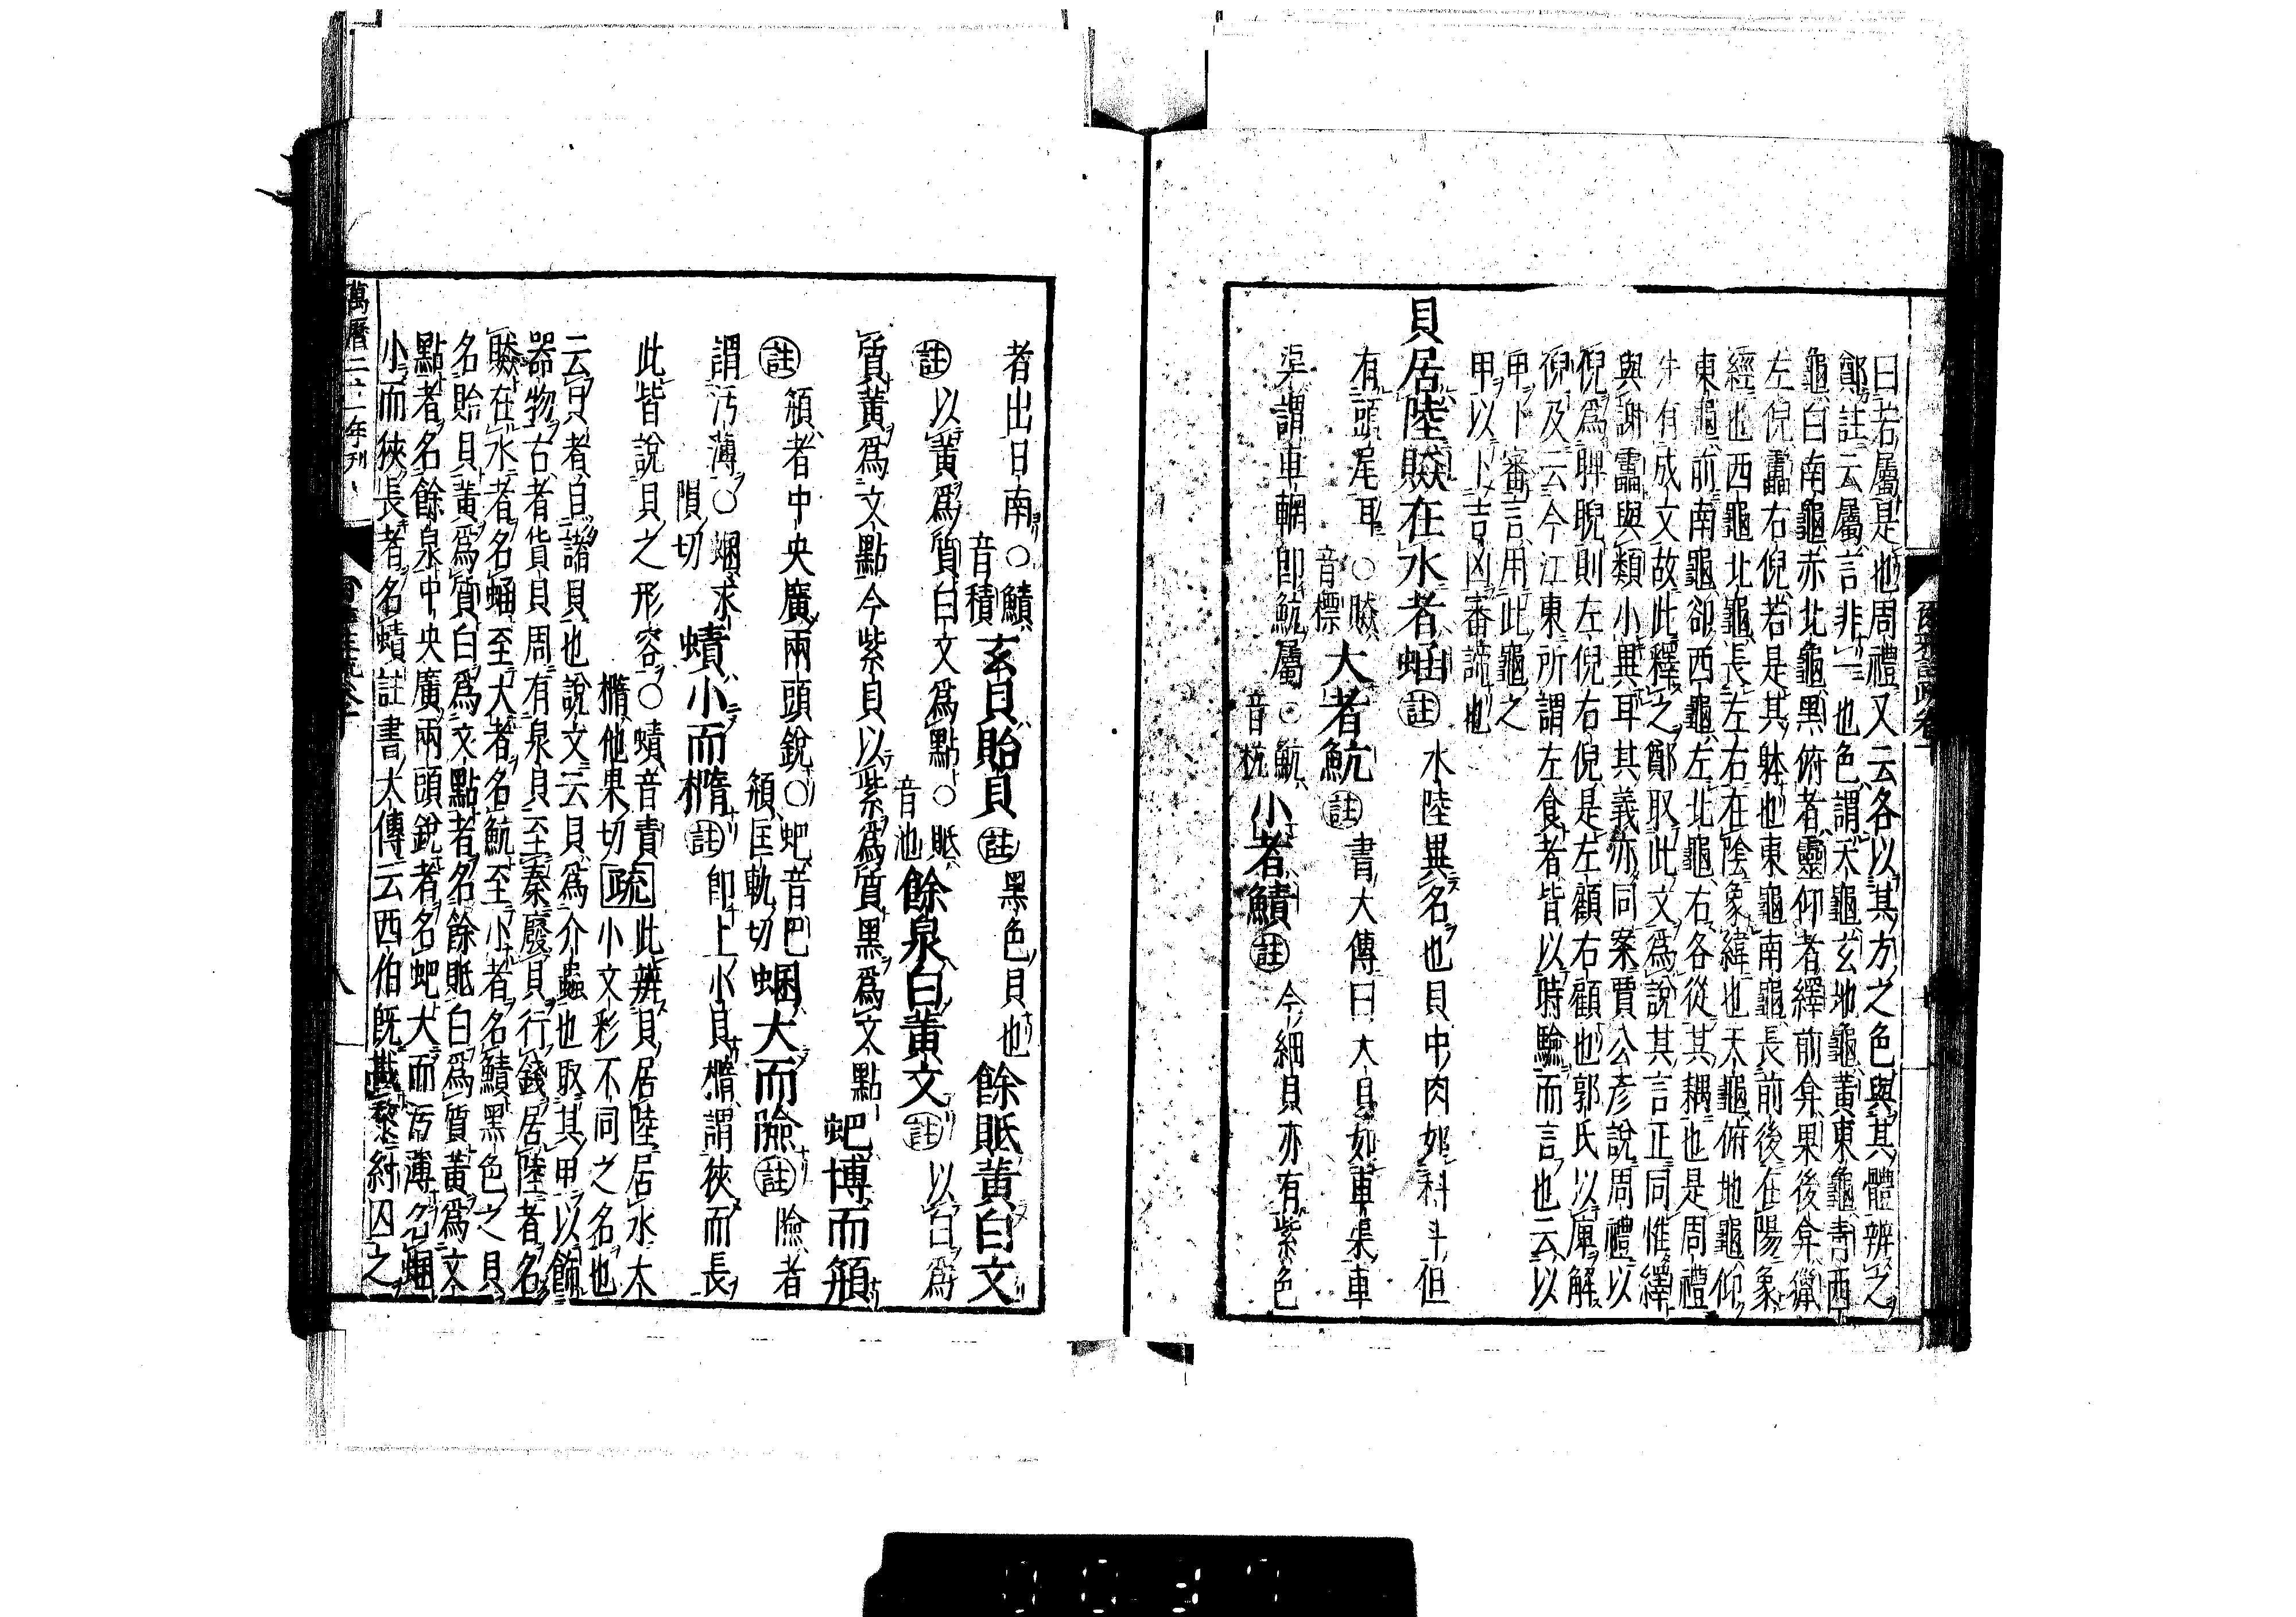 曰若屬是也周禮又云各以其方之色與其體辨之
鄭註云屬言非一也色謂天龜玄地龜黃東龜青西
龜白南龜赤北龜黑俯者靈仰者繹前弇果後弇獵
左倪靁右倪若是其躰也東龜南龜長前後在陽象
經也西龜北龜長左右在陰象緯也天龜俯地龜仰
東龜前南龜卻西龜左北龜右各從其耦也是周禮
先有成文故此釋之鄭取此文爲說其言正同惟繹
與謝靁與類小異耳其義亦同案賈公彥說周禮以
倪爲睥睨則左倪右倪是左顧右顧也郭氏以庳解
倪及云今江東所謂左食者皆以時驗而言也云以
甲卜審言用此龜之
甲以卜吉凶審諦也
貝居陸贆在水者蜬註水陸異名也貝中肉如科斗但
有頭尾耳○贆音標大者魧註書大傳曰大貝如車渠車
渠謂車輞卽魧屬○魧音杭小者鰿註今細貝亦有紫色
爾雅註疏卷十
者出日南○鰿音積玄貝貽貝註黑色貝也餘貾黃白文
註以黃爲質白文爲點○貾音池餘泉白黃文註以白爲
質黃爲文點今紫貝以紫爲質黑爲文點蚆博而頯
註頯者中央廣兩頭銳○蚆音巴頯匡軌切蜠大而險註險者
謂汚薄○蜠求隕切蟦小而橢註卽上小貝橢謂狹而長
此皆說貝之形容○蟦音責橢他果切疏此辨貝居陸居水大
小文彩不同之名也
云貝者自諸貝也說文云貝爲介蟲也取其甲以飾
器物古者貨貝周有泉貝至秦廢貝行錢居陸者名
贆在水者名蜬至大者名魧至小者名鰿黑色之貝
名貽貝黃爲質白爲文點者名餘貾白爲質黃爲文
點者名餘泉中央廣兩頭銳者名蚆大而汚薄名蜠
小而狹長者名蟦註書大傳云西伯旣戡黎紂囚之
萬曆二十一年刊